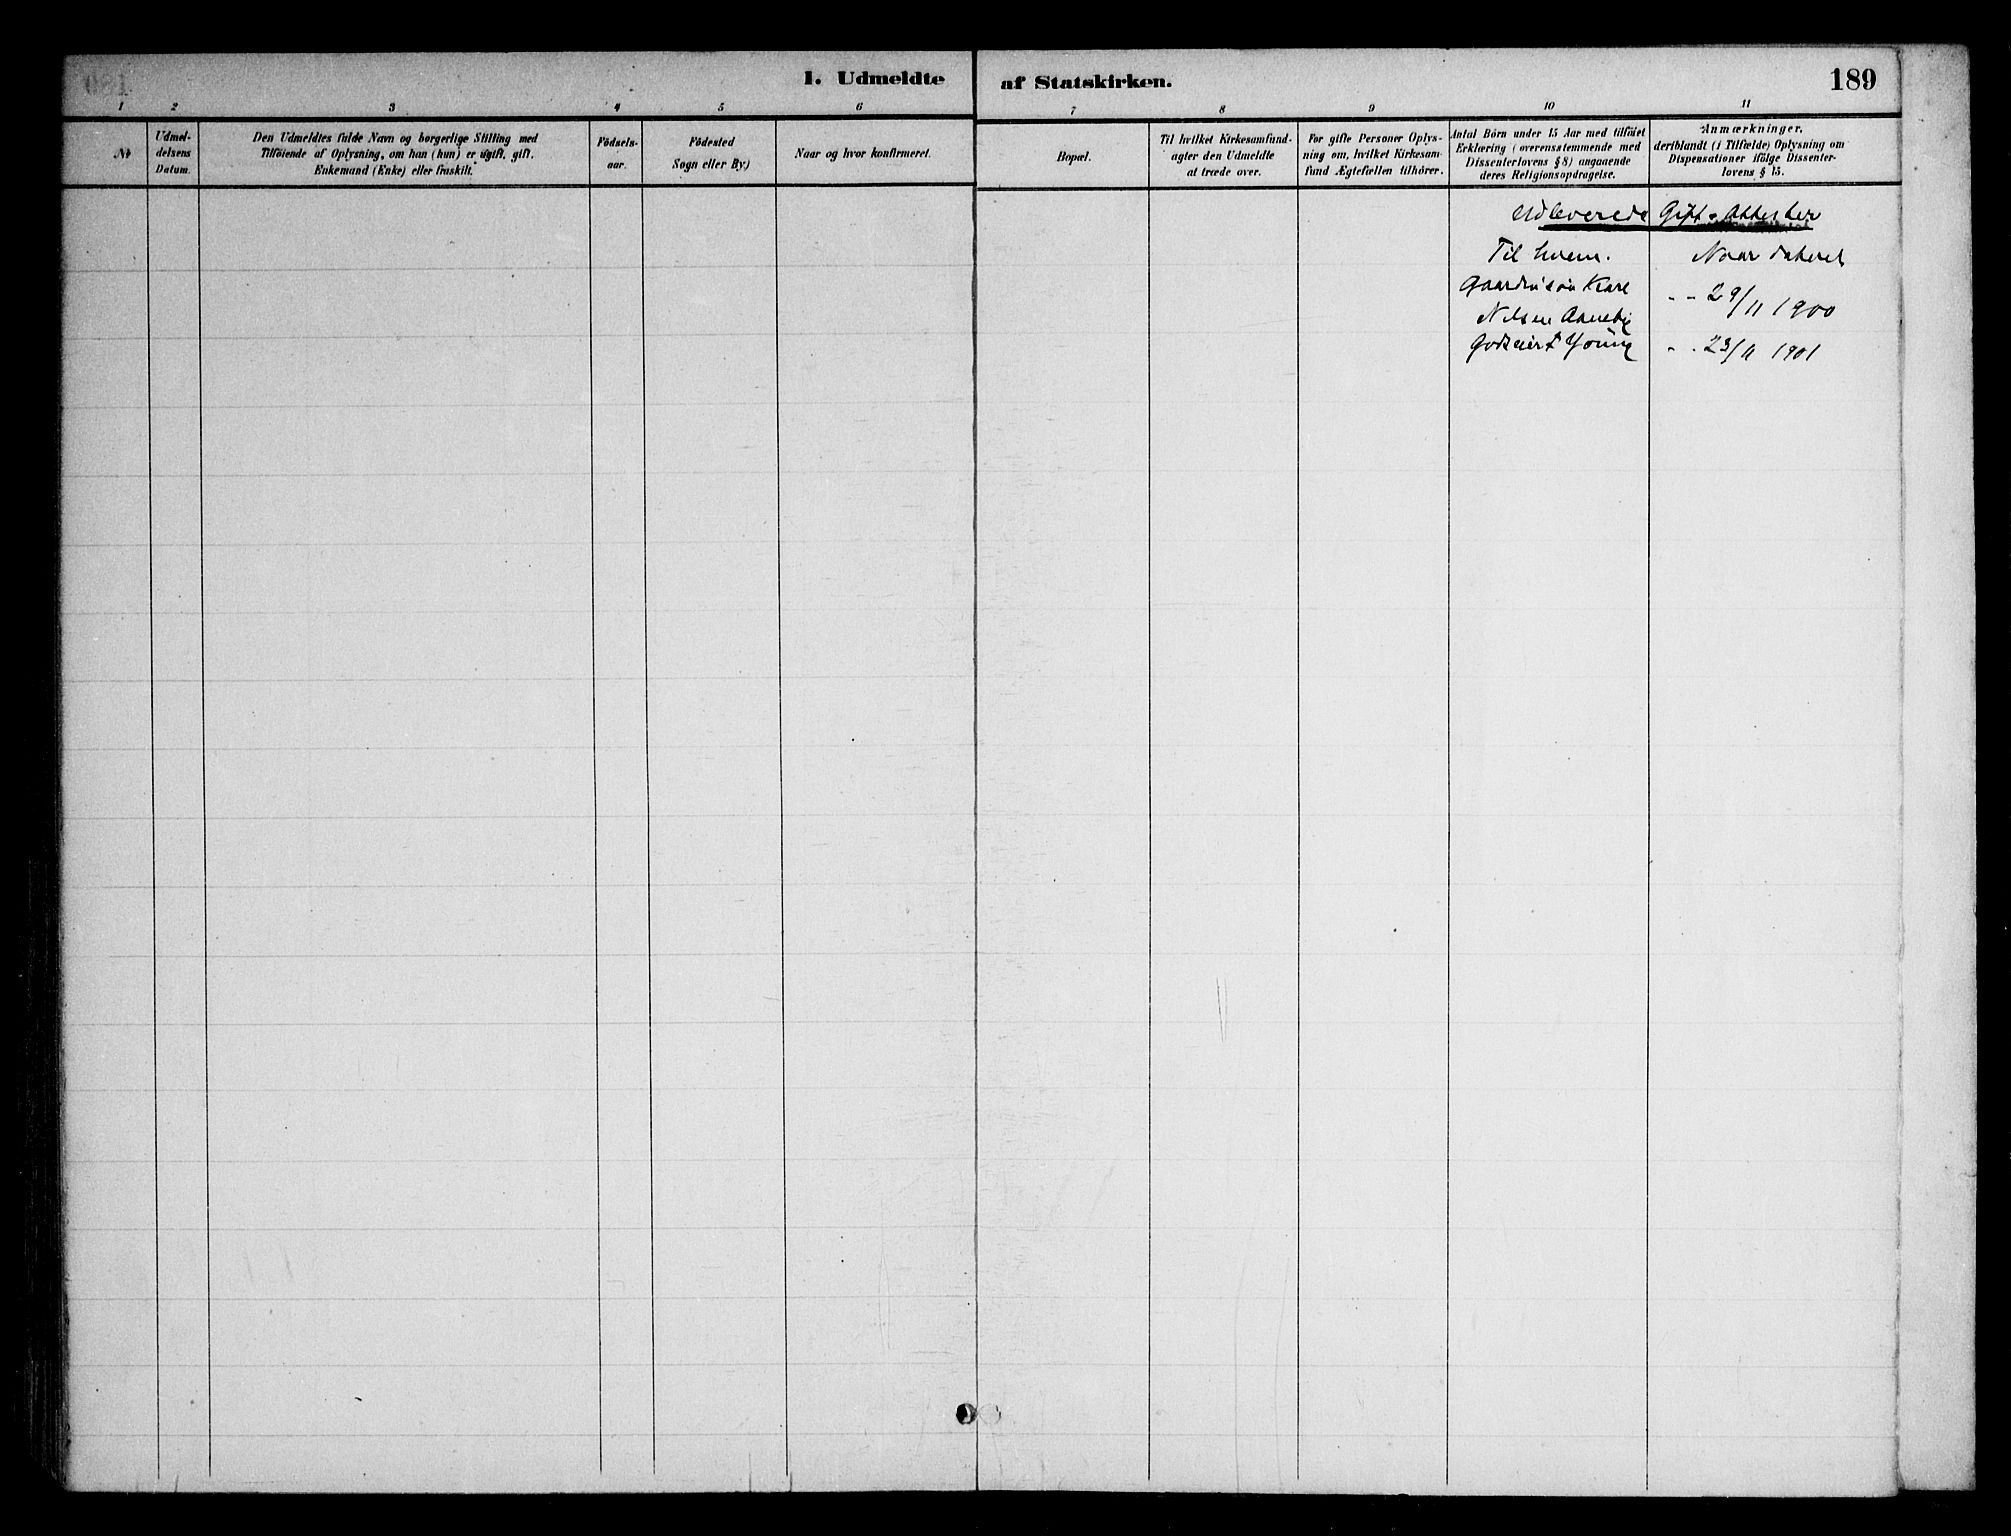 1. Udmeldte af Statskirken. 189
1 2 3 4 5 6 7 8 9 10 11
№
Udmel-
delsens
Datum.
Den Udmeldtes fulde Navn og borgerlige Stilling med
Tilföiende af Oplysning, om han (hun) er ugift, gift,
Enkemand (Enke) eller fraskilt.
Födsels-
aar.
Födested
Sogn eller By.)
Naar og hvor konfirmeret.
Bopæl.
Til hvilket Kirkesamfund-
agter den Udmeldte
at træde over.
For gifte Personer Oplys-
ning om, hvilket Kirkesam-
fund Ægtefællen tilhörer.
Antal Börn under 15 Aar med tilföiet
Erklæring (overensstemmende med
Dissenterlovens § 8) angaaende
deres Religionsopdragelse.
Anmærkninger,
deriblandt (i Tilfælde) Oplysning om
Dispensationer ifölge Dissenter-
lovens § 15.
Udleverede Gift-Attester
Til hvem. Naar dateret
Gaardmand Karl
Nilsen Aaneby - - 29/11 1900
Godseier Young - - 23/11 1901